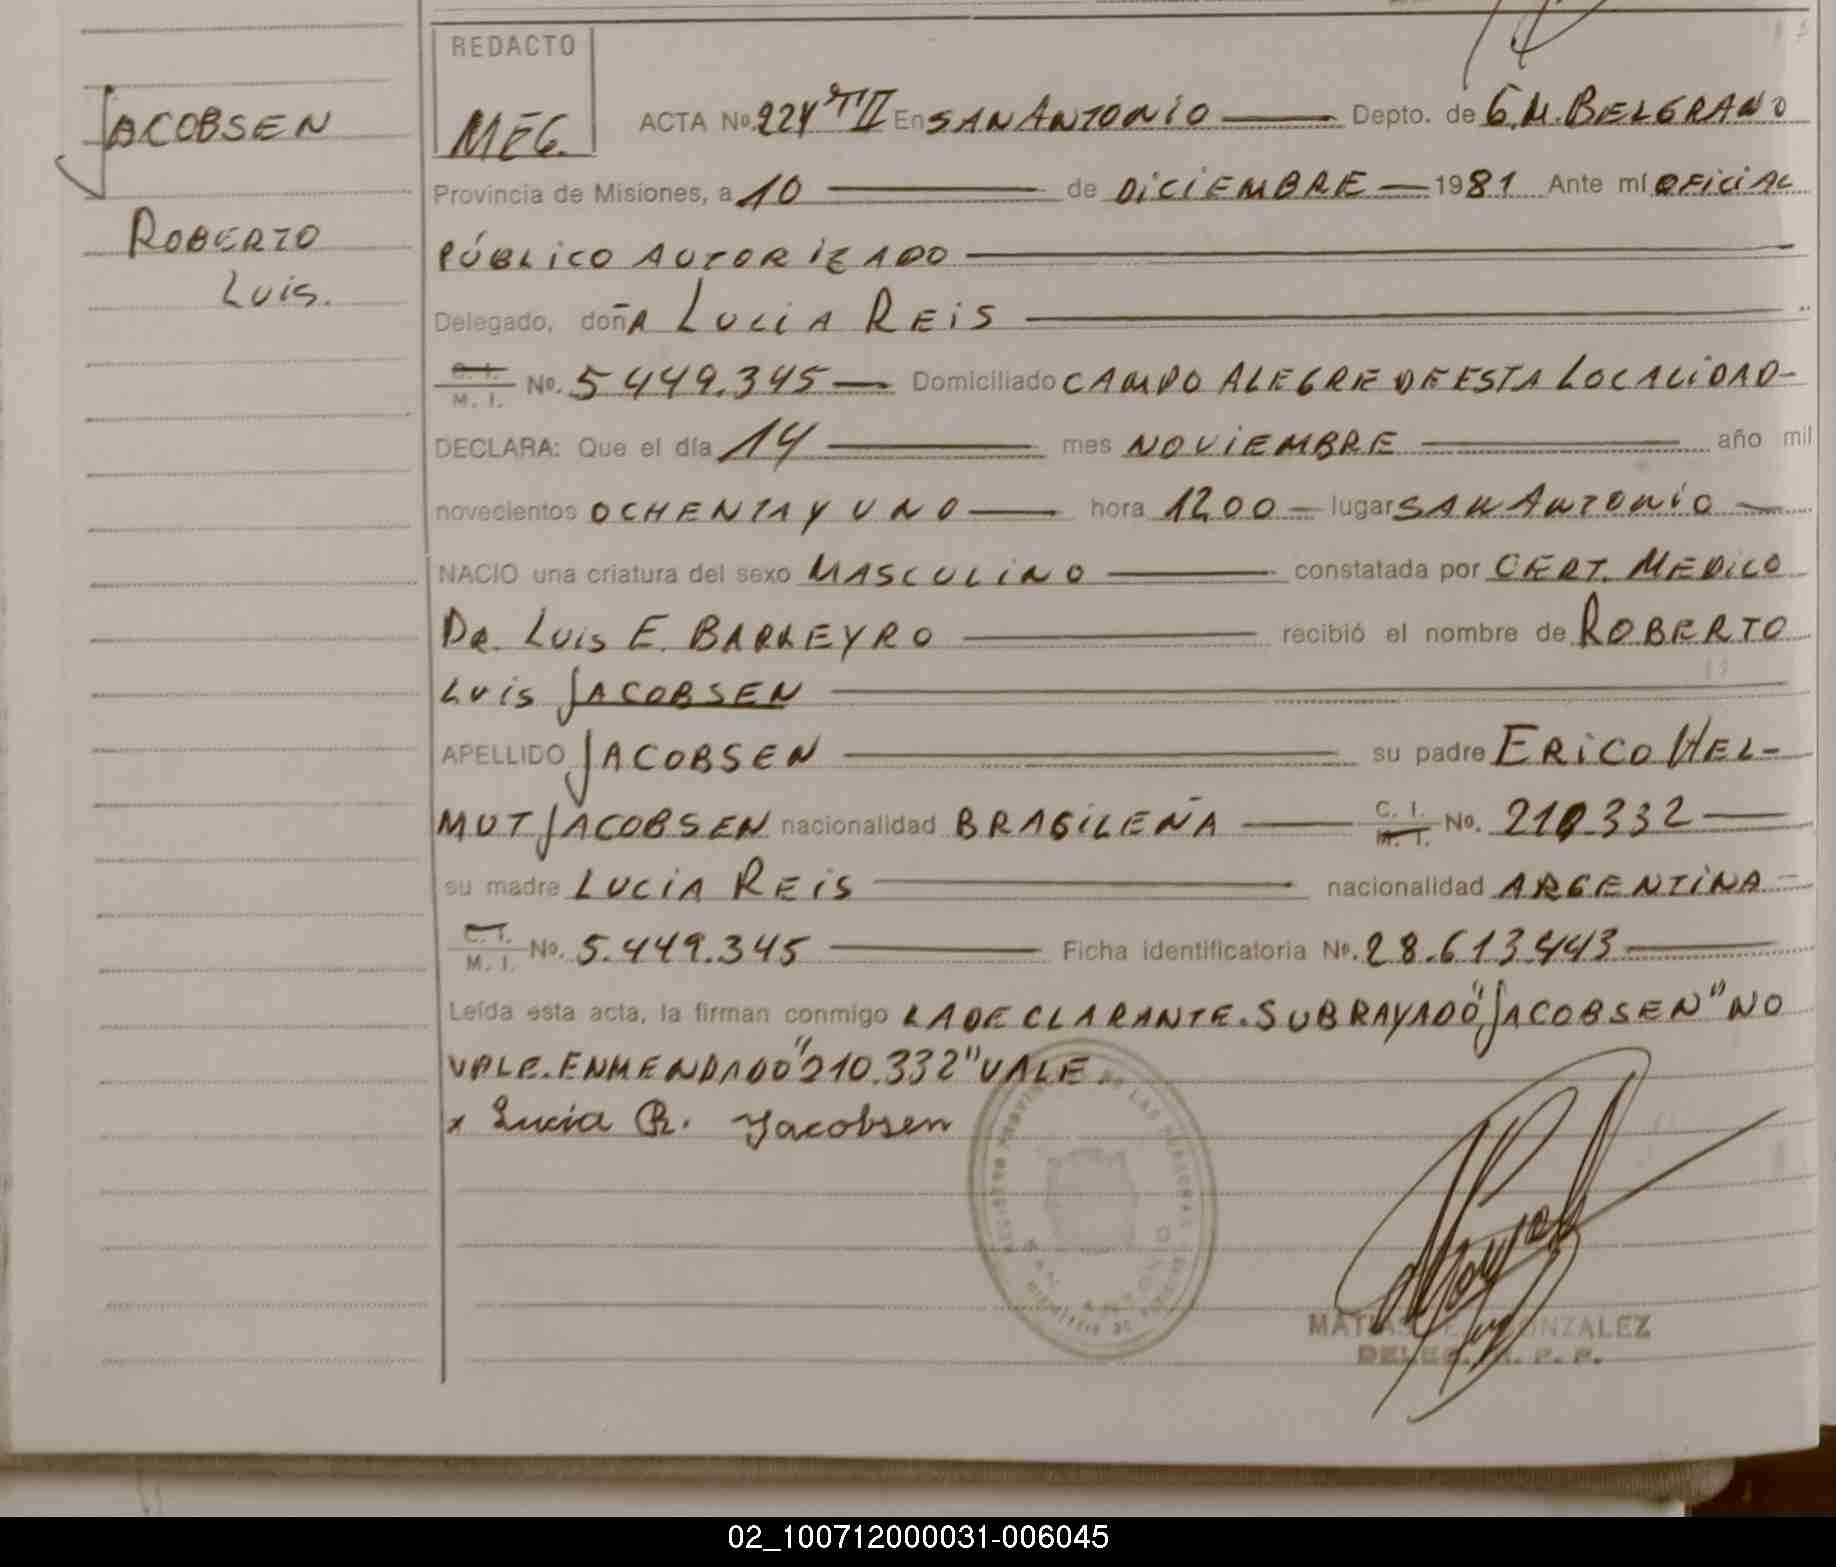 JACOBSEN
ROBERTO
LUIS.
REDACTO
MEG.
ACTA No. 224 TII En SAN ANTONIO Depto. de G.M. BELGRANO
Provincia de Misiones, a 10 de DICIEMBRE 1981 Ante mí OFICIAL
PÚBLICO AUTORIZADO
Delegado, doñA LUCIA REIS
C. I.
M. I. No. 5449.345 Domiciliado CAMPO ALEGRE DE ESTA LOCALIDAD-
DECLARA: Que el día 14 mes NOVIEMBRE año mil
novecientos OCHENTA Y UNO hora 1200 lugar SAN ANTONIO
NACIO una criatura del sexo MASCULINO constatada por CERT. MEDICO
DR. LUIS E. BARREYRO recibió el nombre de ROBERTO
LUIS JACOBSEN
APELLIDO JACOBSEN su padre ERICO HEL-
MUT JACOBSEN nacionalidad BRASILEÑA C. I.
M. I. No. 210.332
su madre LUCIA REIS nacionalidad ARGENTINA
C. I.
M. I. No. 5.449.345 Ficha identificatoria No. 28.613.443
Leída esta acta, la firman conmigo LA DECLARANTE. SUBRAYADO "JACOBSEN" NO
VALE. ENMENDADO "210.332" VALE.
x Lucia R. Jacobsen
REGISTRO PROVINCIAL DE LAS PERSONAS
SAN ANTONIO
GONZALEZ
02_100712000031-006045